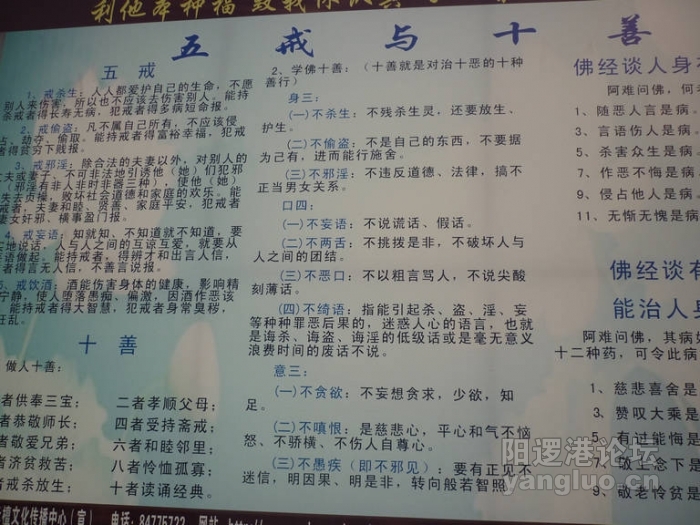 利他本种福
五戒与十善
五 戒
1、戒杀生：人人都爱护自己的生命，不愿
别人来伤害，所以也不应该去伤害别人，能持
杀戒者得长寿无病，犯戒者得多病短命报。
2、戒偷盗：凡不属自己所有，不应该侵
占、劫夺、偷取。能持戒者得富裕幸福，犯戒
者得贫穷下贱报。
3、戒邪淫：除合法的夫妻以外，对别人的
丈夫或妻子，不可非法地引诱他（她）们犯邪
（邪淫有非人非时非器三种），使他（她）
失去贞操，败坏社会道德和家庭的欢乐。能
戒者、夫妻和睦、贤善、家庭平安，犯戒者
妻女奸邪、横事盈门报。
4、戒妄语：知就知、不知道就不知道，要
实地说话，人与人之间的互谅互爱，就要从
语做起。能持戒者，得辨才和出言人信，
者得言无人信，不善言说报。
5、戒饮酒：酒能伤害身体的健康，影响精
宁静，使人堕落愚痴、偏激，因酒作恶该
能持戒者得大智慧，犯戒者身常臭秽，
狂乱。
十 善
做人十善：
者供奉三宝；
二者孝顺父母；
者恭敬师长；
四者受持斋戒；
者敬爱兄弟；
六者和睦邻里；
者济贫救苦；
八者怜恤孤寡；
者戒杀放生；
十者读诵经典。
2、学佛十善：（十善就是对治十恶的十种
善行）
身三：
(一)不杀生：不残杀生灵，还要放生、
护生。
(二)不偷盗：不是自己的东西，不要据
为己有，进而能行施舍。
(三)不邪淫：不违反道德、法律，搞不
正当男女关系。
口四：
(一)不妄语：不说谎话、假话。
(二)不两舌：不挑拨是非，不破坏人与
人之间的团结。
(三)不恶口：不以粗言骂人，不说尖酸
刻薄话。
(四)不绮语：指能引起杀、盗、淫、妄
等种种罪恶后果的，迷惑人心的语言，也就
是诲杀、诲盗、诲淫的低级话或是毫无意义
浪费时间的废话不说。
意三：
(一)不贪欲：不妄想贪求，少欲，知
足。
(二)不嗔恨：是慈悲心，平心和气不恼
怒、不骄横、不伤人自尊心。
(三)不愚疾（即不邪见）：要有正见不
迷信，明因果、明是非，转向般若智照
佛经谈人身
阿难问佛，何
1、随恶人言是病。
3、言语伤人是病。
5、杀害众生是病。
7、作恶不悔是病。
9、侵占他人是病。
11、无惭无愧是病。
佛经谈有
能治人身
阿难问佛，其病
十二种药，可令此病
1、慈悲喜舍是
3、赞叹大乘是
5、有过能悔是
7、敬上念下是
9、敬老怜贫是
文化传播中心（宣） 电话：84775722 网站
阳逻港论坛
yangluo.cn